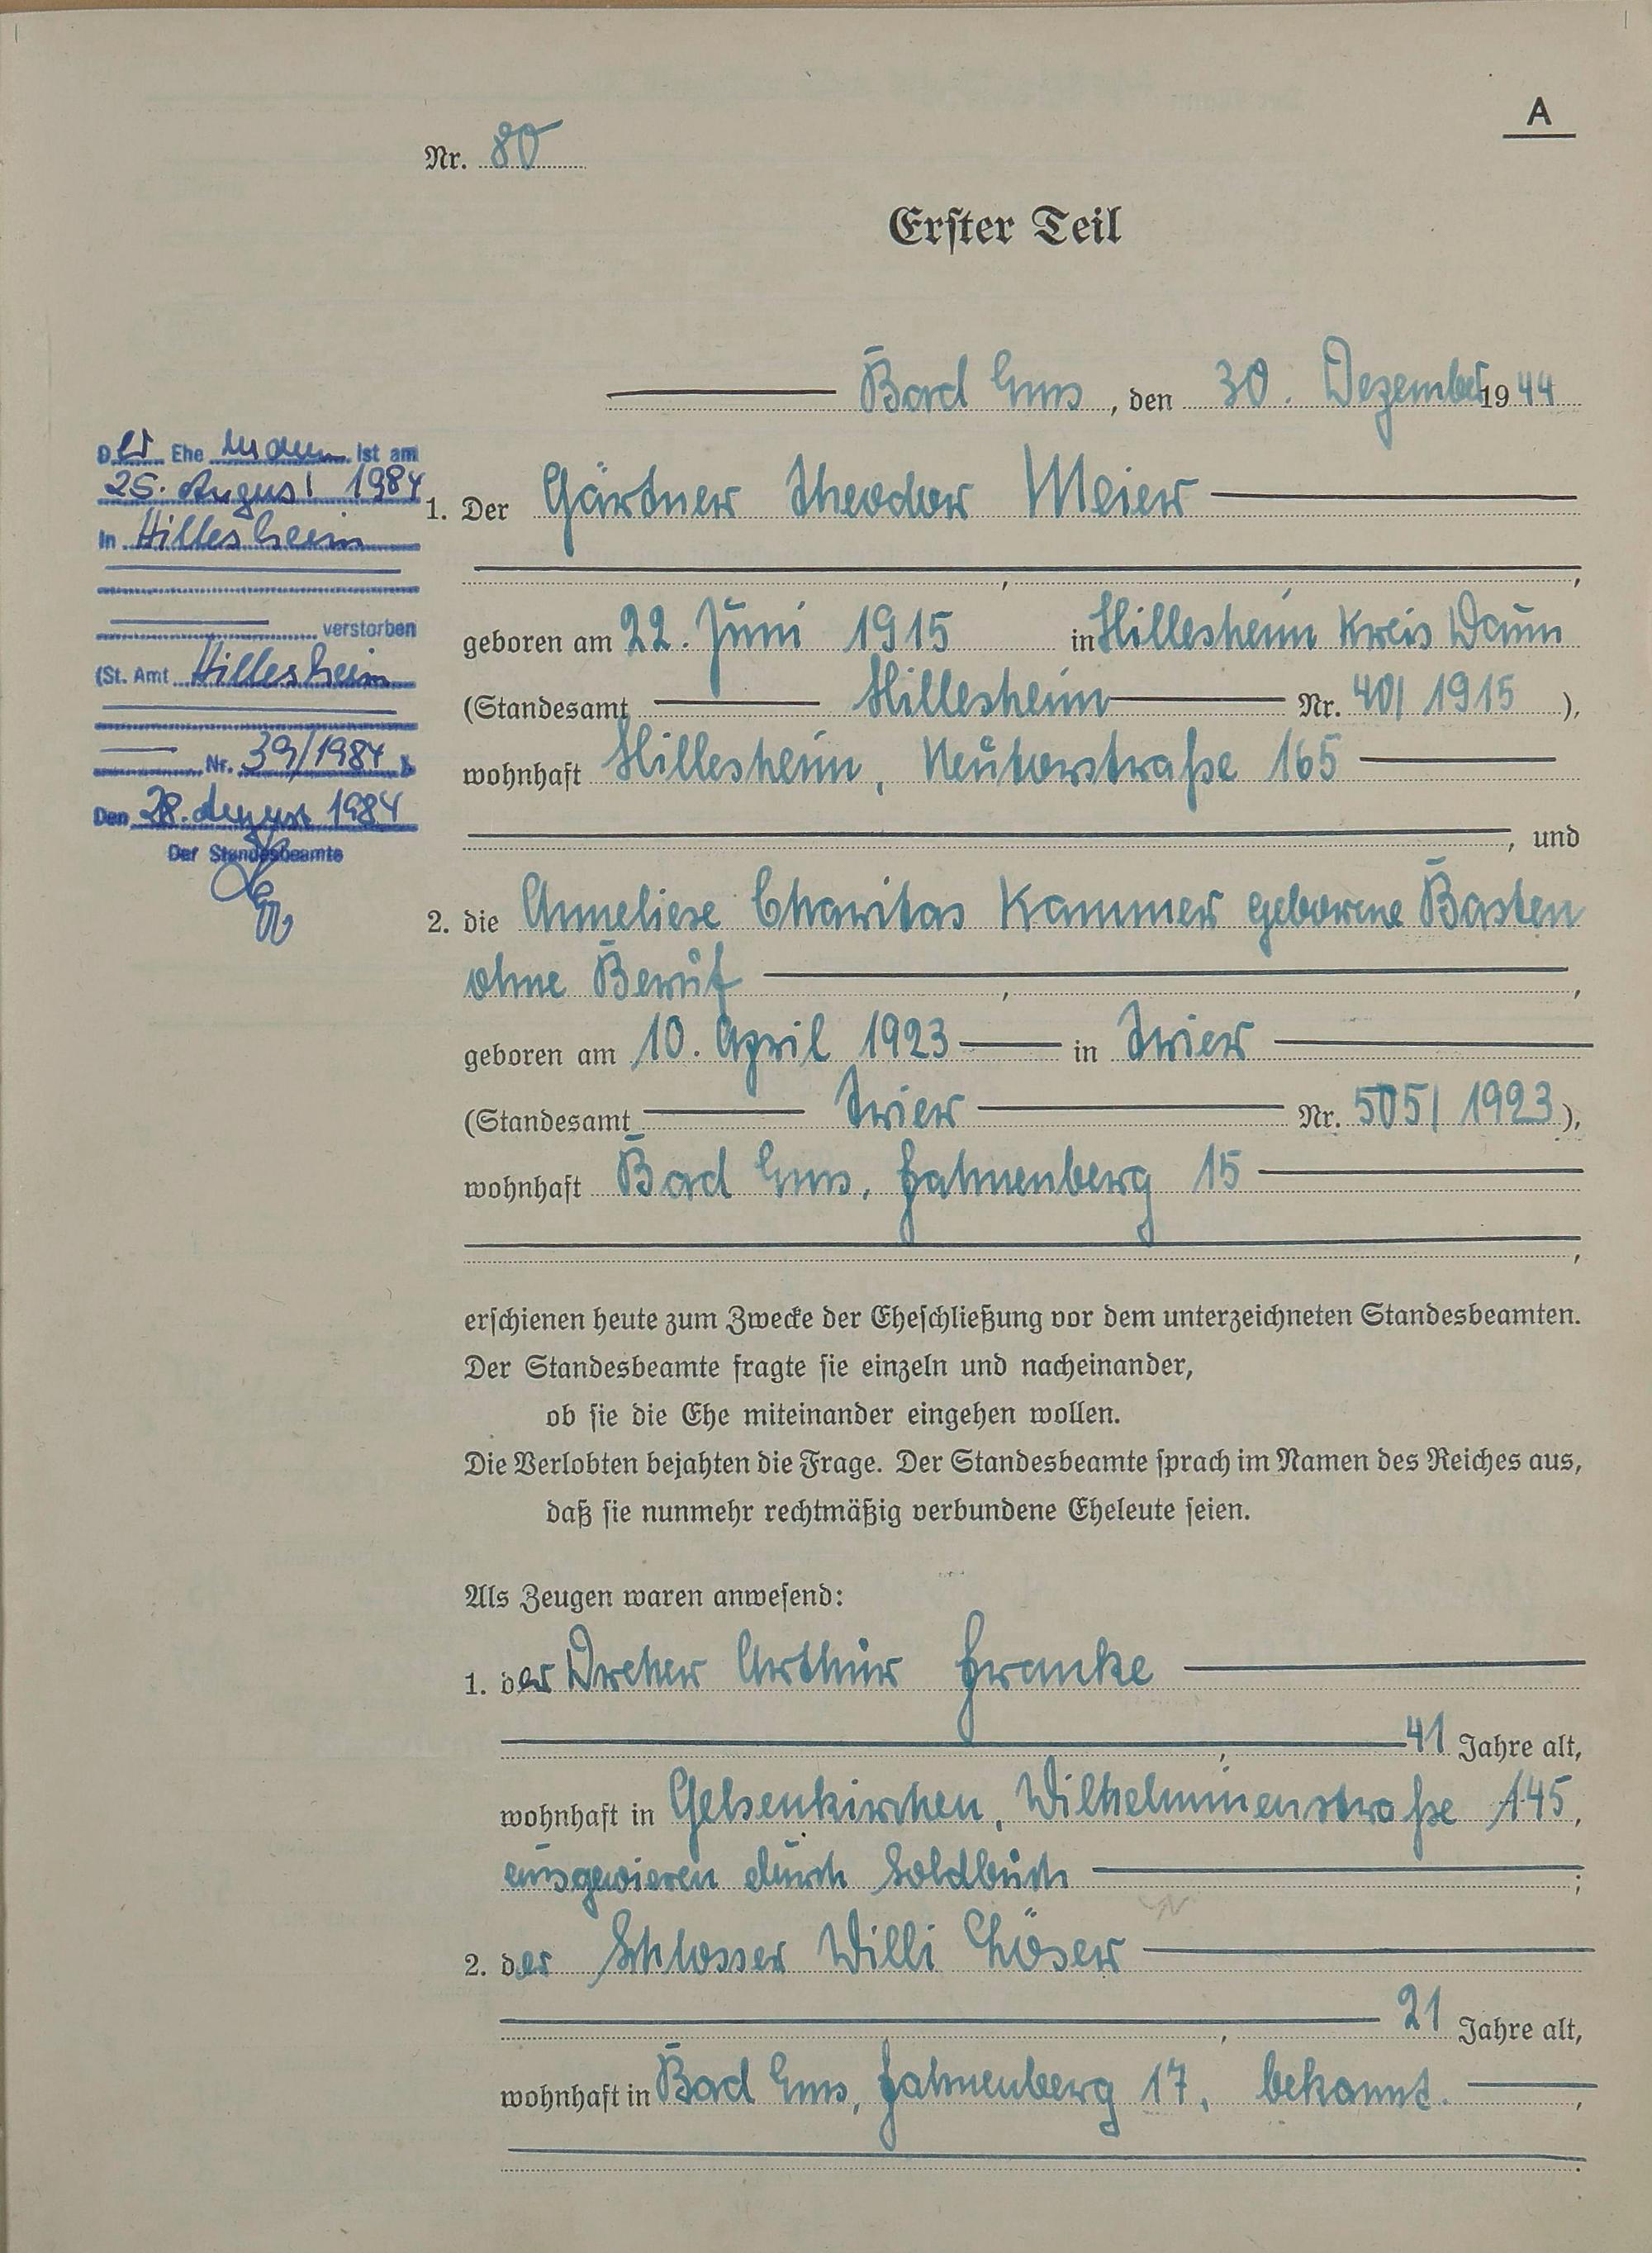 A
Nr. 80
Erster Teil
Bad Ems, den 30. Dezember 1944
Der Ehe mann ist am
25. August 1984
in Hillesheim
verstorben
(St. Amt Hillesheim
Nr. 39/1984
Den 28. August 1984
Der Standesbeamte
1. Der Gärtner Theodor Meier
geboren am 22. Juni 1915 in Hillesheim Kreis Daun
(Standesamt Hillesheim Nr. 40/1915),
wohnhaft Hillesheim, Neutorstraße 165
, und
2. die Anneliese Charitas Kammer geborene Basten
ohne Beruf,
geboren am 10. April 1923 in Trier
(Standesamt Trier Nr. 505/1923),
wohnhaft Bad Ems, Hahnenberg 15
erschienen heute zum Zwecke der Eheschließung vor dem unterzeichneten Standesbeamten.
Der Standesbeamte fragte sie einzeln und nacheinander,
ob sie die Ehe miteinander eingehen wollen.
Die Verlobten bejahten die Frage. Der Standesbeamte sprach im Namen des Reiches aus,
daß sie nunmehr rechtmäßig verbundene Eheleute seien.
Als Zeugen waren anwesend:
1. der Dreher Arthur Franke
41 Jahre alt,
wohnhaft in Gelsenkirchen, Wilhelminenstraße 145,
ausgewiesen durch Soldbuch;
2. der Schlosser Willi
21 Jahre alt,
wohnhaft in Bad Ems, Hahnenberg 17, bekannt.